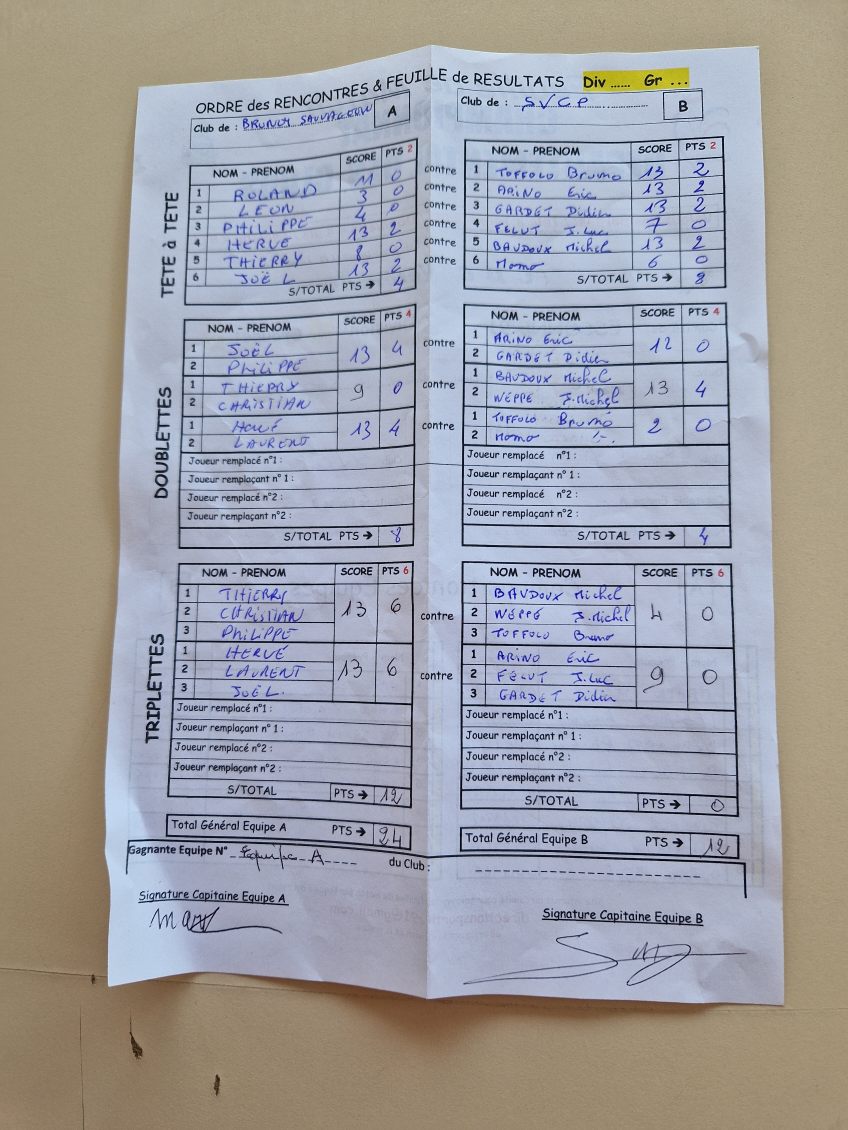 ORDRE des RENCONTRES & FEUILLE de RESULTATS Div ...... Gr ...
Club de : BRUNOY SAUVAGEON A
Club de : SVCP B
TETE à TETE
NOM - PRENOM SCORE PTS 2
1 ROLAND 11 0
2 LEON 3 0
3 PHILIPPE 4 0
4 HERVE 13 2
5 THIERRY 8 0
6 JOËL 13 2
S/TOTAL PTS → 4
contre
contre
contre
contre
contre
contre
NOM - PRENOM SCORE PTS 2
1 TOFFOLO Bruno 13 2
2 ARINO Eric 13 2
3 GARDET Didier 13 2
4 FELUT J.Luc 7 0
5 BAUDOUX Michel 13 2
6 Momo 6 0
S/TOTAL PTS → 8
DOUBLETTES
NOM - PRENOM SCORE PTS 4
1 JOËL 13 4
2 PHILIPPE
1 THIERRY 9 0
2 CHRISTIAN
1 HERVÉ 13 4
2 LAURENT
Joueur remplacé n°1 :
Joueur remplaçant n° 1 :
Joueur remplacé n°2 :
Joueur remplaçant n°2 :
S/TOTAL PTS → 8
contre
contre
contre
NOM - PRENOM SCORE PTS 4
1 ARINO Eric 12 0
2 GARDET Didier
1 BAUDOUX Michel 13 4
2 WEPPE J.Michel
1 TOFFOLO Bruno 2 0
2 Momo
Joueur remplacé n°1 :
Joueur remplaçant n° 1 :
Joueur remplacé n°2 :
Joueur remplaçant n°2 :
S/TOTAL PTS → 4
TRIPLETTES
NOM - PRENOM SCORE PTS 6
1 THIERRY
2 CHRISTIAN 13 6
3 PHILIPPE
1 HERVÉ
2 LAURENT 13 6
3 JOËL.
Joueur remplacé n°1 :
Joueur remplaçant n° 1 :
Joueur remplacé n°2 :
Joueur remplaçant n°2 :
S/TOTAL PTS → 12
contre
contre
NOM - PRENOM SCORE PTS 6
1 BAUDOUX Michel
2 WEPPE J.Michel 4 0
3 TOFFOLO Bruno
1 ARINO Eric
2 FELUT J.Luc 9 0
3 GARDET Didier
Joueur remplacé n°1 :
Joueur remplaçant n° 1 :
Joueur remplacé n°2 :
Joueur remplaçant n°2 :
S/TOTAL PTS → 0
Total Général Equipe A PTS → 24
Total Général Equipe B PTS → 12
Gagnante Equipe N° Equipe A du Club :
Signature Capitaine Equipe A
Signature Capitaine Equipe B